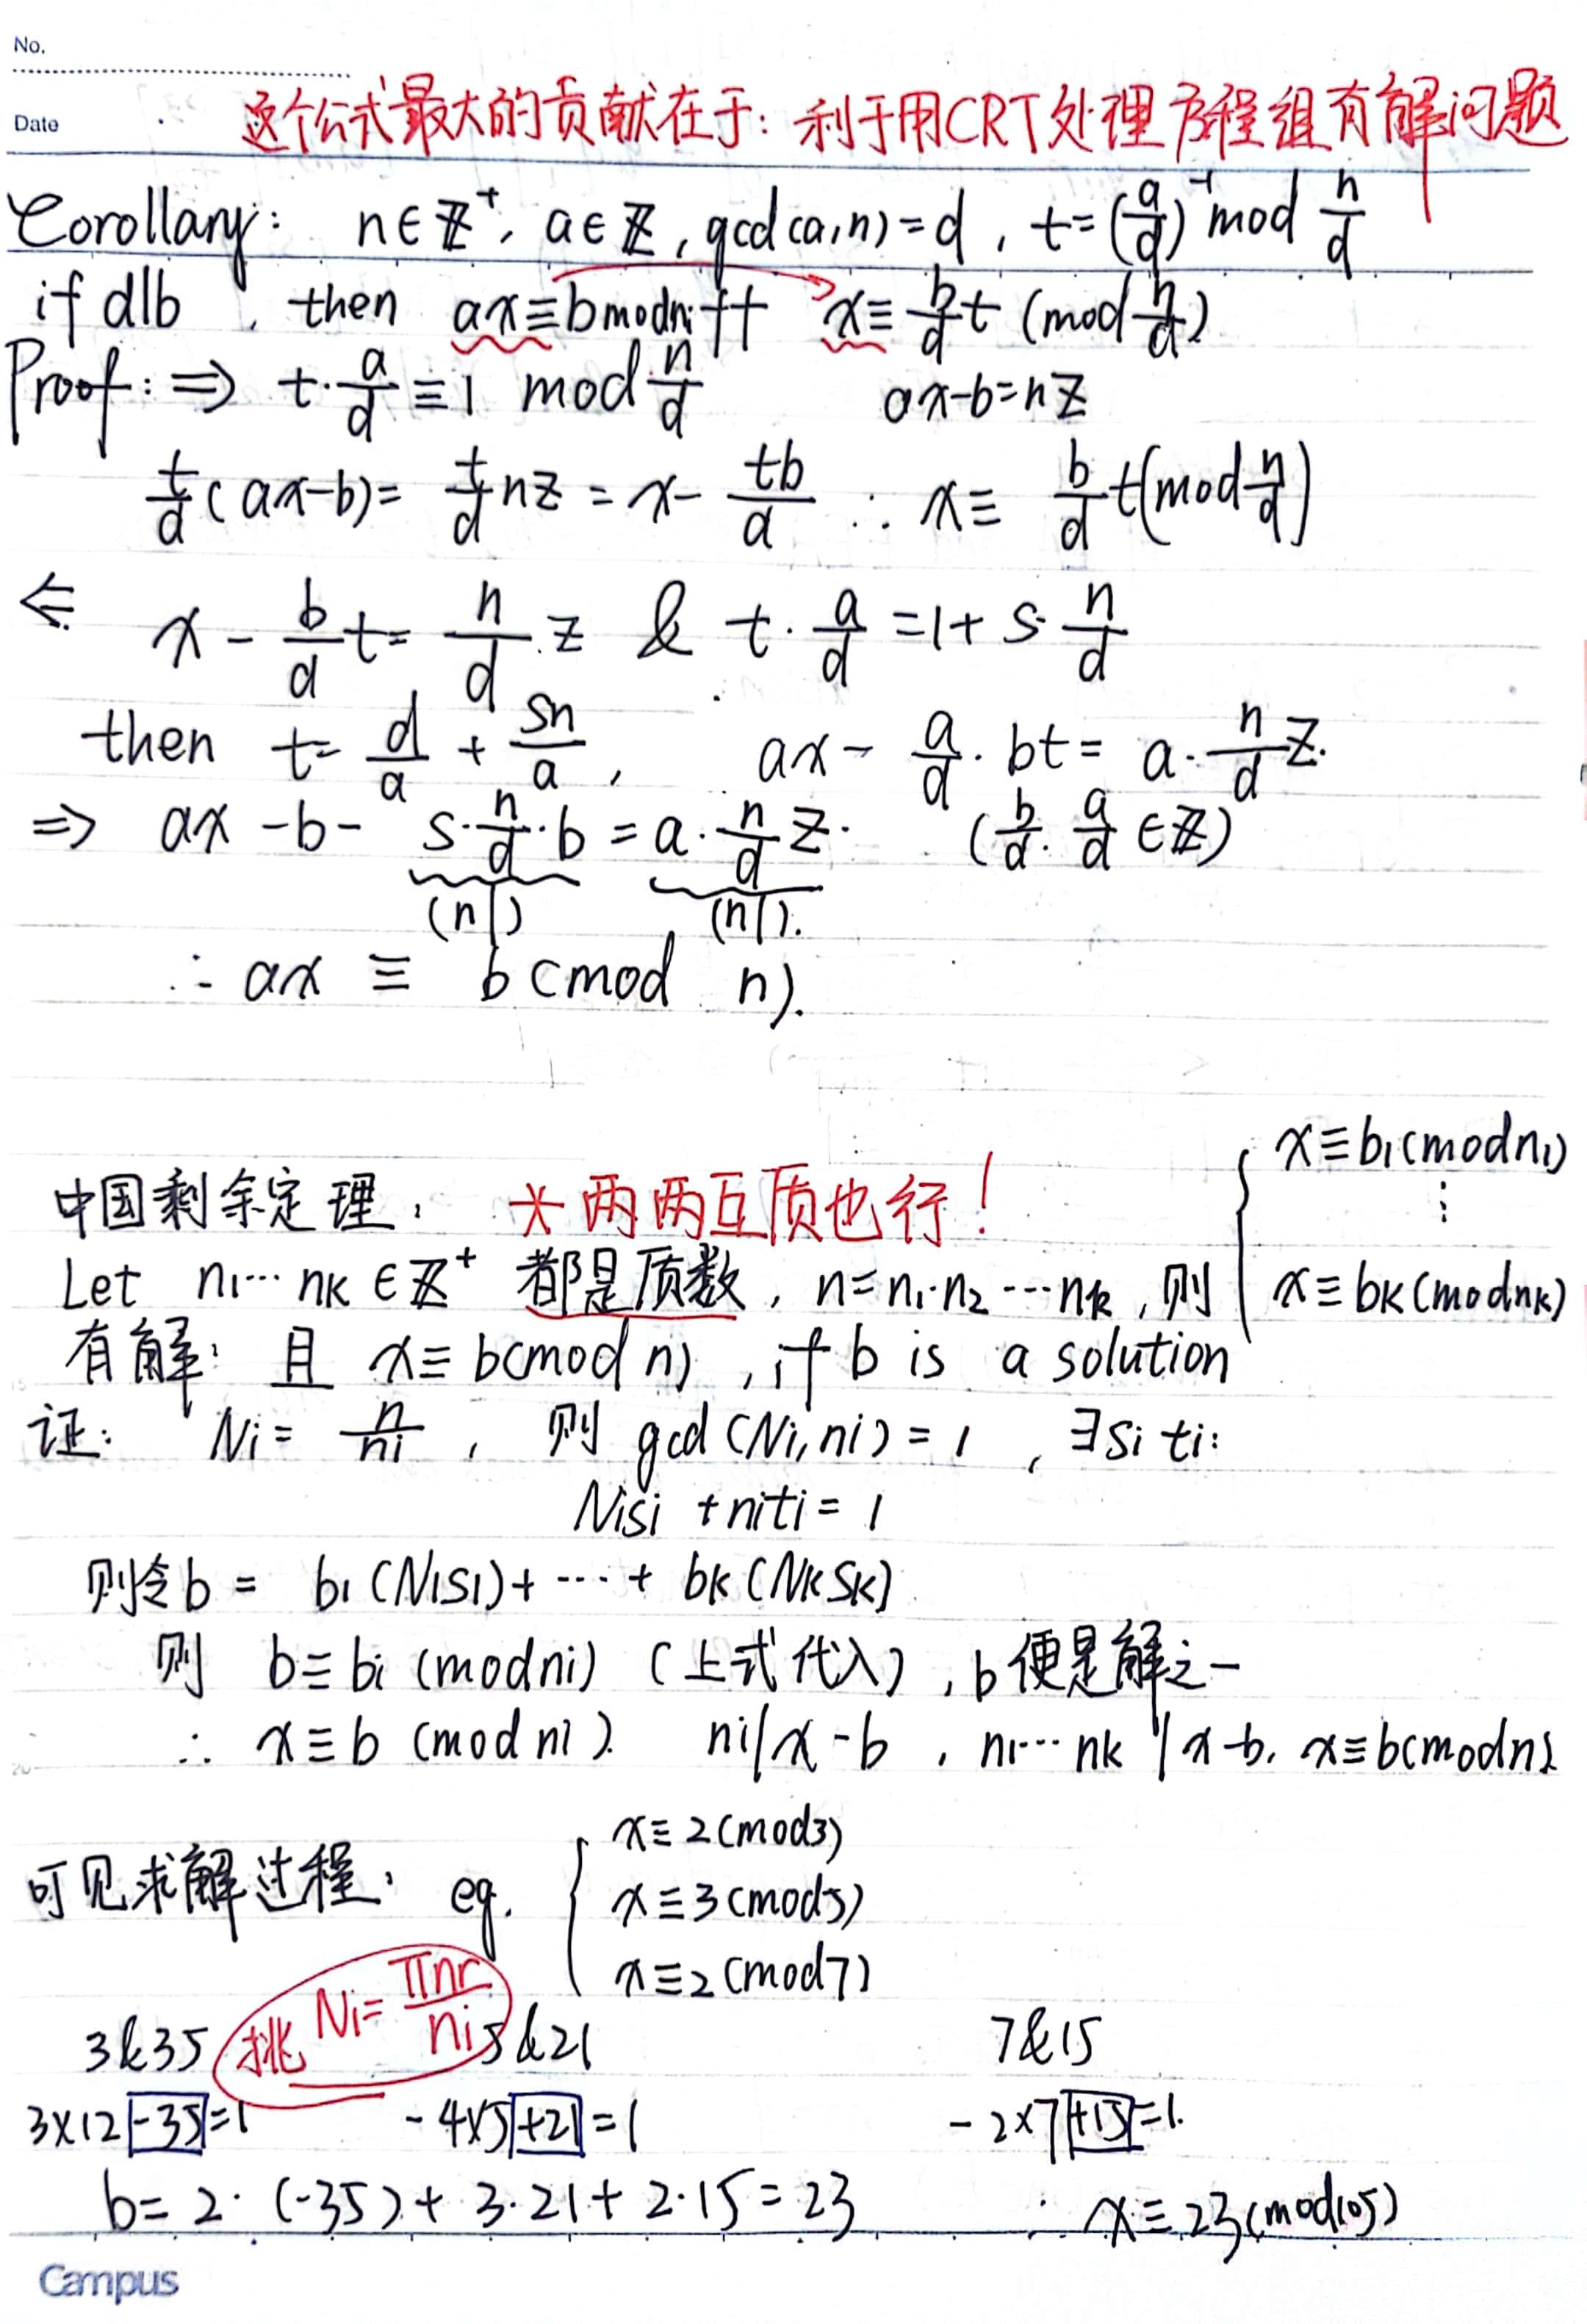 No.
Date
这个公式最大的贡献在于：利于用CRT处理方程组有解问题
Corollary: n∈ℤ⁺, a∈ℤ, gcd(a,n)=d, t=(a/d)⁻¹ mod n/d
if d|b, then ax≡b mod n iff x≡ b/d t (mod n/d)
Proof: ⇒ t·a/d ≡1 mod n/d ax-b=nz
t/d (ax-b)= t/d nz = x- tb/d ∴ x≡ b/d t(mod n/d)
⇐ x - b/d t= n/d·z & t·a/d =1+ s·n/d
then t= d/a + sn/a, ax- a/d·bt= a·n/d z.
⇒ ax -b- s·n/d·b = a·n/d z. (b/d·a/d ∈ℤ)
(n|) (n|).
∴ ax ≡ b (mod n).
中国剩余定理： *两两互质也行！
Let n₁…nk ∈ℤ⁺ 都是质数, n=n₁·n₂…nk, 则 { x≡b₁(mod n₁) ⋮ x≡bk(mod nk)
有解；且 x≡b(mod n), if b is a solution
证: Ni= n/ni, 则 gcd(Ni,ni)=1, ∃si ti:
Nisi +niti=1
则令b = b₁(N₁S₁)+…+ bk(NkSk)
则 b≡bi (mod ni) (上式代入), b便是解之一
∴ x≡b (mod ni). ni|x-b, n₁…nk |x-b, x≡b(mod n).
可见求解过程: eg. { x≡2(mod3)
x≡3(mod5)
x≡2(mod7)
挑 Ni= Πnr/ni
3&35 5&21 7&15
3×12-35=1 -4×5+21=1 -2×7+15=1.
b=2·(-35)+3·21+2·15=23 ∴ x≡23(mod105)
Campus